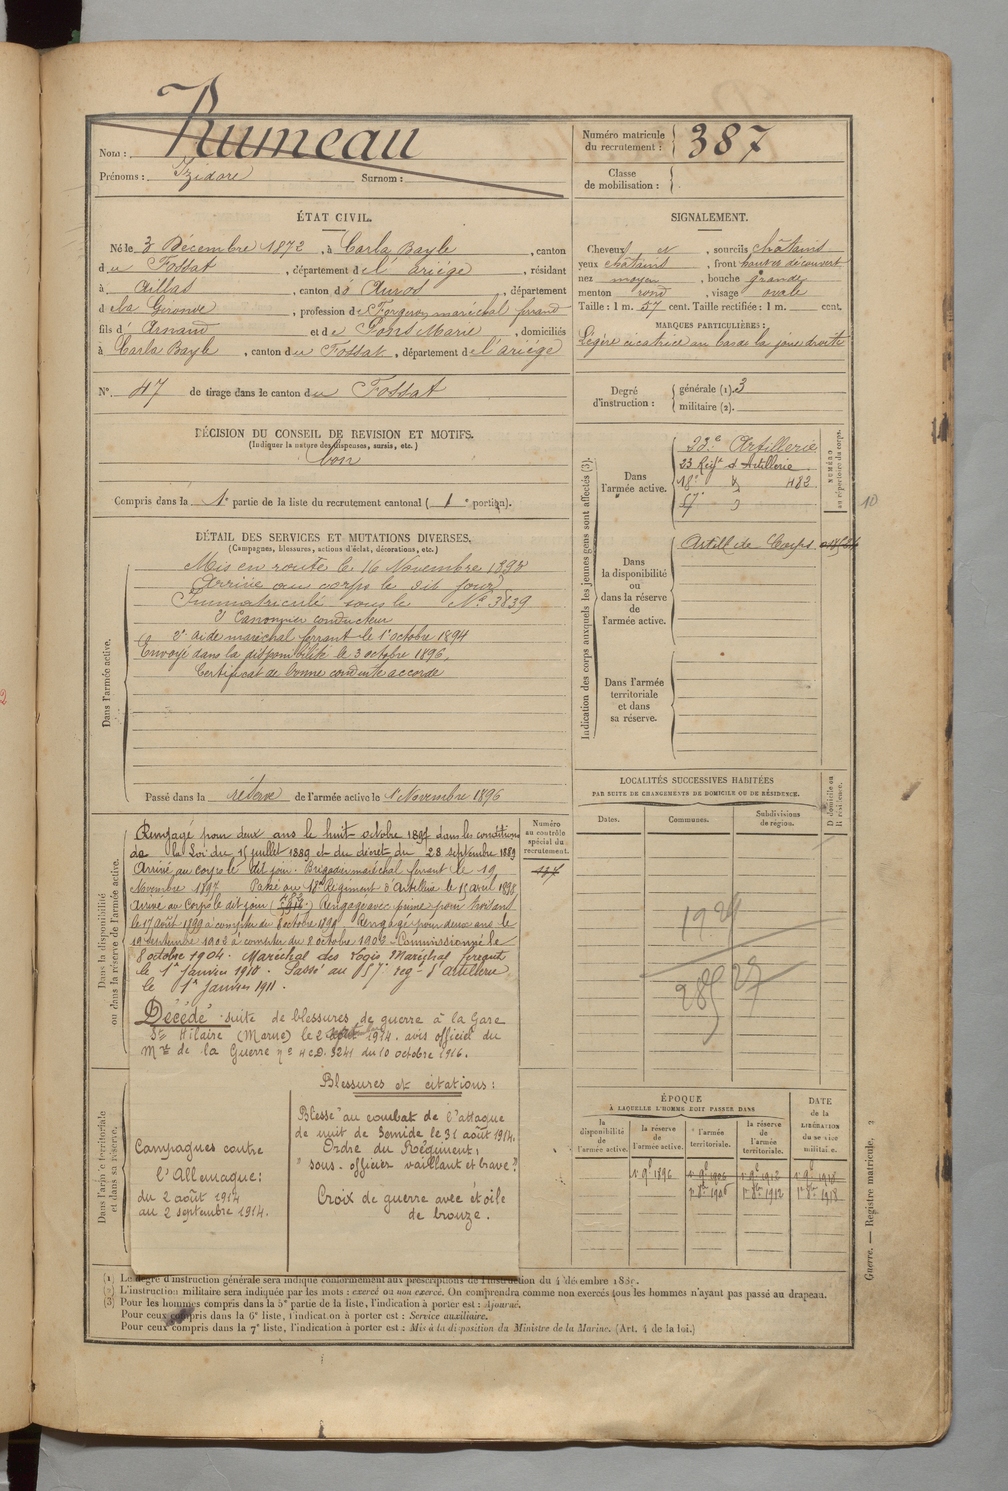 Nom : Rumeau
Prénoms : Izidore Surnom :
Numéro matricule du recrutement : 387
Classe de mobilisation :
ÉTAT CIVIL.
Né le 3 Décembre 1872, à Carla Bayle, canton
du Fossat, département de l'ariège, résidant
à Aillas, canton d'Auros, département
de la Gironde, profession de Forgeron maréchal ferrant
fils d'Arnaud et de Pons Marie, domiciliés
à Carla Bayle, canton du Fossat, département de l'ariège
N° 47 de tirage dans le canton du Fossat
SIGNALEMENT.
Cheveux et, sourcils châtains
yeux châtains, front hauteur découvert
nez moyen, bouche grande
menton rond, visage ovale
Taille : 1 m. 57 cent. Taille rectifiée : 1 m. cent.
MARQUES PARTICULIÈRES :
Légère cicatrice au bas de la joue droite
Degré d'instruction : générale (1). 3
militaire (2).
DÉCISION DU CONSEIL DE REVISION ET MOTIFS.
(Indiquer la nature des dispenses, sursis, etc.)
bon
Compris dans la 1e partie de la liste du recrutement cantonal ( 1e portion).
DÉTAIL DES SERVICES ET MUTATIONS DIVERSES.
(Campagnes, blessures, actions d'éclat, décorations, etc.)
Dans l'armée active.
Mis en route le 16 Novembre 1893
Arrivé au corps le dit jour
Immatriculé sous le No 3839
2e Canonnier conducteur
2e aide maréchal ferrant le 1er octobre 1894
Envoyé dans la disponibilité le 3 octobre 1896.
Certificat de bonne conduite accordé
Passé dans la réserve de l'armée active le 1er Novembre 1896
Indication des corps auxquels les jeunes gens sont affectés (3).
NUMÉRO au répertoire du corps.
Dans l'armée active.
23e Artillerie
23 Regt d'Artillerie
18e d 483
57e d
10
Dans la disponibilité ou dans la réserve de l'armée active.
Artill de Corps
Dans l'armée territoriale et dans sa réserve.
LOCALITÉS SUCCESSIVES HABITÉES
PAR SUITE DE CHANGEMENTS DE DOMICILE OU DE RÉSIDENCE.
Dates. Communes. Subdivisions de région. D domicile ou R résidence.
Numéro au contrôle spécial du recrutement.
Dans la disponibilité ou dans la réserve de l'armée active.
Rengagé pour deux ans le huit octobre 1897 dans les conditions
de la Loi du 15 juillet 1889 et du décret du 28 septembre 1889
Arrivé au corps le dit jour. Brigadier maréchal ferrant le 19
Novembre 1897. Passé au 18e Régiment d'Artillerie le 15 avril 1898
Arrivé au Corps le dit jour Rengagé avec prime pour trois ans
le 17 août 1899 à compter du 8 octobre 1899 Rengagé pour deux ans le
19 Septembre 1903 à compter du 8 octobre 1903 Commissionné le
8 octobre 1904. Maréchal des Logis Maréchal ferrant
le 1er Janvier 1910. Passé au 57e reg. d'artillerie
le 1er Janvier 1911.
Décédé suite de blessures de guerre à la Gare
St Hilaire (Marne) le 2 septembre 1914. avis officiel du
Mre de la Guerre no 4 C.D. 3241 du 10 octobre 1916.
1929
285 27
Dans l'armée territoriale et dans sa réserve.
Campagnes contre
l'Allemagne :
du 2 août 1914
au 2 septembre 1914.
Blessures et citations :
Blessé au combat de l'attaque
de nuit de Semide le 31 août 1914.
Ordre du Régiment :
"sous-officier vaillant et brave."
Croix de guerre avec étoile
de bronze.
ÉPOQUE
À LAQUELLE L'HOMME DOIT PASSER DANS
DATE de la LIBÉRATION du service militaire.
la disponibilité de l'armée active. la réserve de l'armée active. l'armée territoriale. la réserve de l'armée territoriale.
1er 9b 1896 1er 9b 1906 1er 9b 1912 1er 9b 1918
1er 8bre 1906 1er 8bre 1912 1er 8bre 1918
(1) Le degré d'instruction générale sera indiqué conformément aux prescriptions de l'instruction du 4 décembre 1889.
(2) L'instruction militaire sera indiquée par les mots : exercé ou non exercé. On comprendra comme non exercés tous les hommes n'ayant pas passé au drapeau.
(3) Pour les hommes compris dans la 5e partie de la liste, l'indication à porter est : Ajourné.
Pour ceux compris dans la 6e liste, l'indication à porter est : Service auxiliaire.
Pour ceux compris dans la 7e liste, l'indication à porter est : Mis à la disposition du Ministre de la Marine. (Art. 4 de la loi.)
Guerre. — Registre matricule. 2